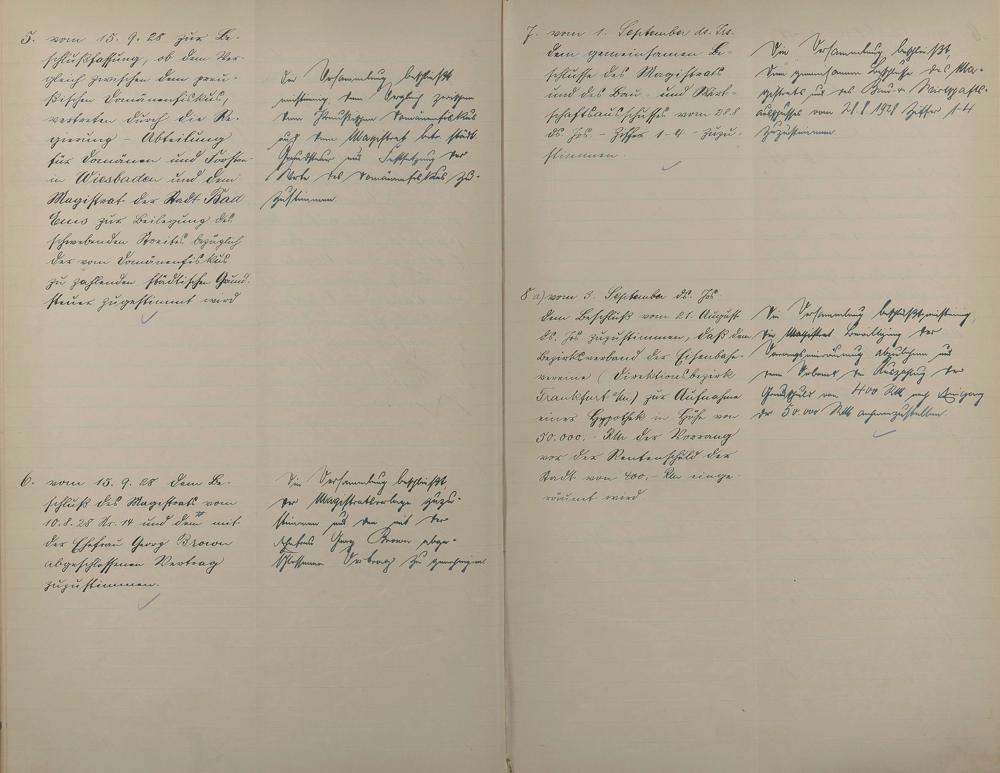 5. vom 15. 9. 28 zur Be-
schlußfassung, ob dem Ver-
gleich zwischen dem preu-
ßischen Domänenfiskus,
vertreten durch die Re-
gierung - Abteilung
für Domänen und Forsten
in Wiesbaden und dem
Magistrat der Stadt Bad
Ems zur Beilegung des
schwebenden Streites bezüglich
der vom Domänenfiskus
zu zahlenden städtischen Grund-
steuer zugestimmt wird
Die Versammlung beschließt
einstimmig dem Vergleich zwischen
dem Preussischen Domänenfiskus
und dem Magistrat betr. städt.
Grundsteuer und Festsetzung der
Werte des Domänenfiskus zu-
zustimmen.
6. vom 15. 9. 28 dem Be-
schluß des Magistrats vom
10. 8. 28 Nr. 14 und dem mit
der Ehefrau Georg Brown
abgeschlossenen Vertrag
zuzustimmen.
Die Versammlung beschließt
der Magistratsvorlage zuzu-
stimmen und den mit der
Ehefrau Georg Brown abge-
schlossenen Vertrag zu genehmigen
7. vom 1. September ds. Jrs.
dem gemeinsamen Be-
schlusse des Magistrats
und des Bau- und Wirt-
schaftsausschusses vom 28.8
ds. Js. - Ziffer 1-4 - zuzu-
stimmen.
Die Versammlung beschließt
dem gemeinsamen Beschlusse des Ma-
gistrats und des Bau u Wirtschafts-
ausschusses vom 28.8 1928 Ziffer 1-4
zuzustimmen
8 a) vom 3. September ds. Js
dem Beschluß vom 21. August
ds. Js zuzustimmen, daß dem
Bezirksverband der Eisenbahn-
vereine (Direktionsbezirk
Frankfurt a/m.) zur Aufnahme
einer Hypothek in Höhe von
50.000,- RM der Vorrang
vor der Rentenschuld der
Stadt von 400,- RM einge-
räumt wird
Die Versammlung beschließt einstimmig,
die Magistrat Bewilligung der
Vorrangseinräumung abzulehnen und
dem Verband die Auszahlung der
Grundschuld von 400 RM nach Eingang
der 50.000 RM anheimzustellen.